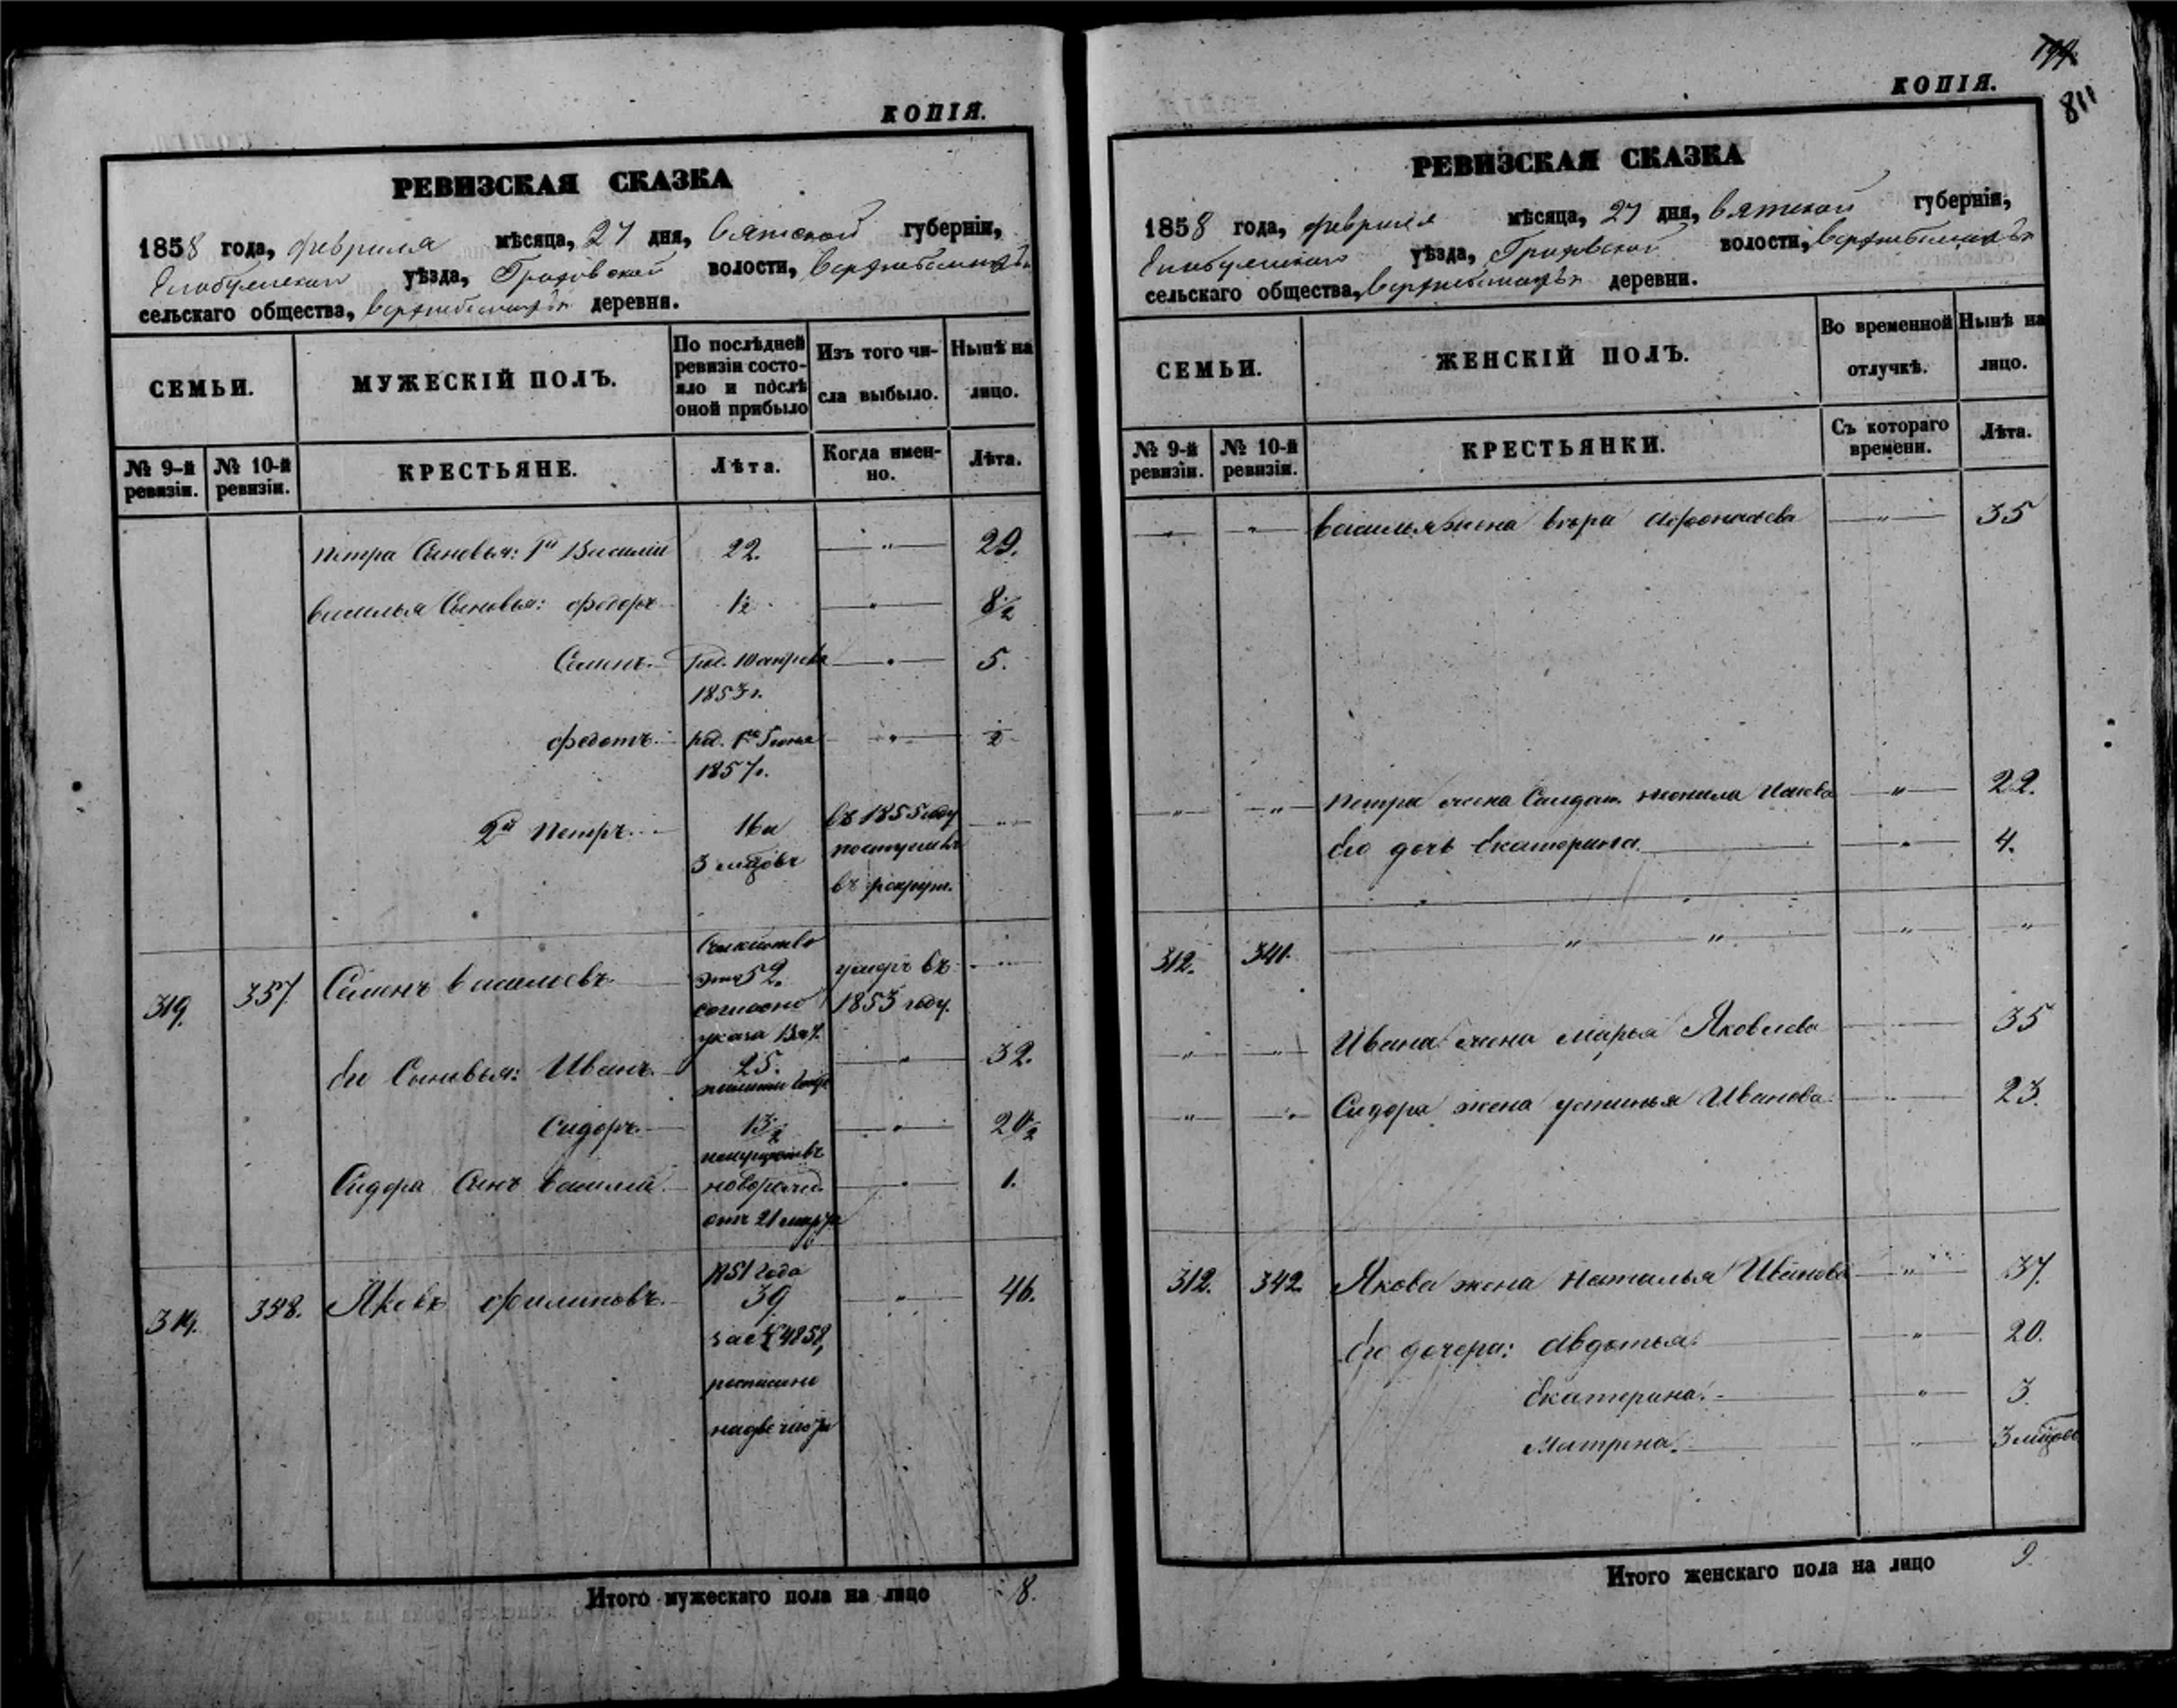 КОПІЯ.
РЕВИЗСКАЯ СКАЗКА
1858 года, февраля мѣсяца, 27 дня, Вятской губерніи,
Елабужскаго уѣзда, волости,
сельскаго общества, деревни.
СЕМЬИ.
МУЖЕСКІЙ ПОЛЪ.
По послѣдней
ревизіи состо-
яло и послѣ
оной прибыло
Изъ того чи-
сла выбыло.
Нынѣ на
лицо.
№ 9-й
ревизіи.
№ 10-й
ревизіи.
КРЕСТЬЯНЕ.
Лѣта.
Когда имен-
но.
Лѣта.
Петра Сыновья: 1й Василій 22. — " — 29.
Василья Сыновья: Федоръ ½ — " — 8½
Семенъ. — " — 5.
1853 г.
Федотъ. род. 1го — " — ½
1857 г.
2й Петръ. 16 и въ 1855 году — " —
3 мѣсцовъ поступилъ
въ рекрут.
319. 357 Семенъ Васильевъ 52. умеръ въ — " —
согласно 1853 году.
указа
Его Сыновья: Иванъ. 25. — " — 32.
Сидоръ. 13½ — " — 20½
Сидора Сынъ Василій — " — 1.
отъ 21 марта
1851 года
319. 358. Яковъ Филиповъ. 39 — " — 46.
4858,
росписано
на две части
Итого мужескаго пола на лицо 8.
КОПІЯ.
811
РЕВИЗСКАЯ СКАЗКА
1858 года, февраля мѣсяца, 27 дня, Вятской губерніи,
Елабужскаго уѣзда, волости,
сельскаго общества, деревни.
СЕМЬИ.
ЖЕНСКІЙ ПОЛЪ.
Во временной
отлучкѣ.
Нынѣ на
лицо.
№ 9-й
ревизіи.
№ 10-й
ревизіи.
КРЕСТЬЯНКИ.
Съ котораго
времени.
Лѣта.
— " — — " — Василья жена — " — 35
— " — — " — Петра жена Солдат. — " — 22.
Его дочь Екатерина — " — 4.
312. 341. — " — " — " — "
— " — — " — Ивана жена Марья Яковлева — " — 35
— " — — " — Сидора жена Устинья Иванова — " — 23.
312. 342. Якова жена Наталья Иванова — " — 37.
Его дочери: Авдотья — " — 20.
Екатерина. — " — 3
Матрена. — " — 3 мѣсцовъ
Итого женскаго пола на лицо 9.